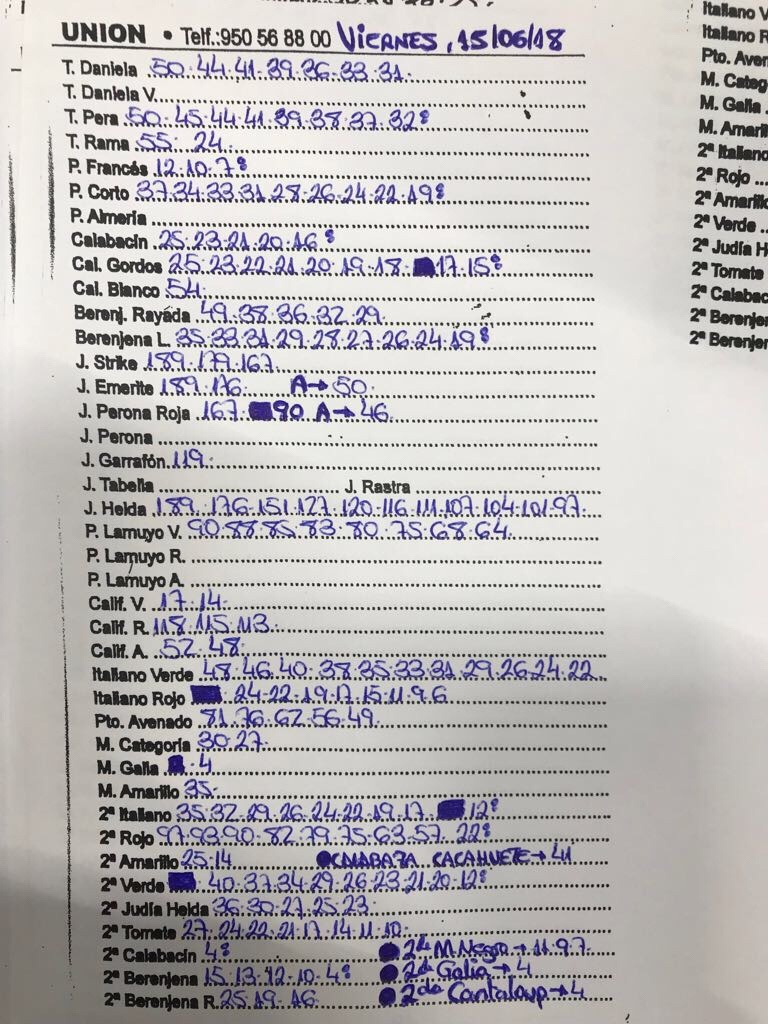 UNION • Telf.:950 56 88 00 VIERNES, 15/06/18
T. Daniela 50.44.41.39.36.33.31.
T. Daniela V.
T. Pera 50.45.44.41.39.38.37.32º
T. Rama 55. 24.
P. Francés 12.10.7º
P. Corto 37.34.33.31.28.26.24.22.19º
P. Almería
Calabacín 25.23.21.20.16º
Cal. Gordos 25.23.22.21.20.19.18. 17.15º
Cal. Blanco 54.
Berenj. Rayada 49.38.36.32.29.
Berenjena L. 35.33.31.29.28.27.26.24.19º
J. Strike 189.179.167.
J. Emerite 189.176 A→50.
J. Perona Roja 167. 90 A→46.
J. Perona
J. Garrafón 119.
J. Tabella J. Rastra
J. Helda 189.176.151.127.120.116.111.107.104.101.97.
P. Lamuyo V. 90.88.85.83.80.75.68.64.
P. Lamuyo R.
P. Lamuyo A.
Calif. V. 17.14.
Calif. R. 118.115.113.
Calif. A. 52.48.
Italiano Verde 48.46.40.38.35.33.31.29.26.24.22
Italiano Rojo 24.22.19.17.15.11.9.6
Pto. Avenado 81.76.62.56.49.
M. Categoría 30.27.
M. Galia 4
M. Amarillo 35.
2ª Italiano 35.32.29.26.24.22.19.17. 12º
2ª Rojo 97.93.90.82.79.75.63.57.22º
2ª Amarillo 25.14 CALABAZA CACAHUETE→41
2ª Verde 40.37.34.29.26.23.21.20.12º
2ª Judía Helda 36.30.27.25.23.
2ª Tomate 27.24.22.21.17.14.11.10.
2ª Calabacín 4º 2da M.Negro→11.9.7.
2ª Berenjena 15.13.12.10.4º 2da Galia→4
2ª Berenjena R. 25.19.16. 2da Cantaloup→4
Italiano
Italiano
Pto.
M.
M. Galia
M.
2ª Italiano
2ª Rojo
2ª Amarillo
2ª Verde
2ª Judía
2ª Tomate
2ª
2ª
2ª